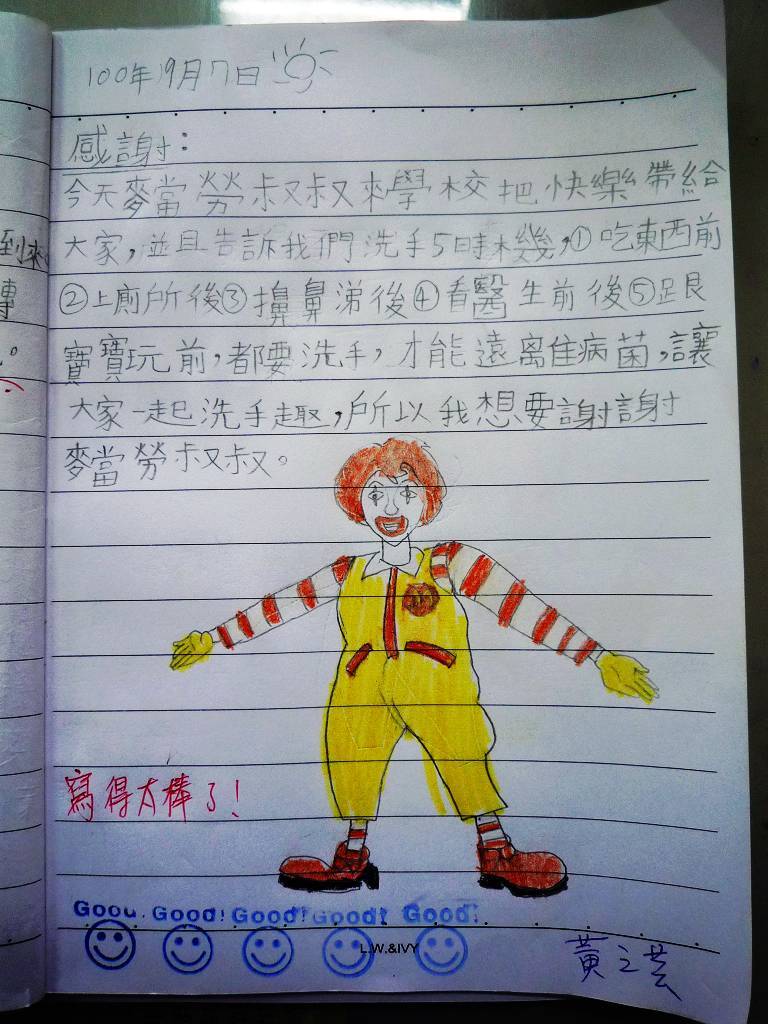 100年9月7日
感謝：
今天麥當勞叔叔來學校把快樂帶給
大家，並且告訴我們洗手5時機，①吃東西前
②上廁所後③擤鼻涕後④看醫生前後⑤跟
寶寶玩前，都要洗手，才能遠离隹病菌，讓
大家一起洗手趣，所以我想要謝謝
麥當勞叔叔。
到來
寫得太棒了！
Good! Good! Good! Good! Good!
L.W.&IVY